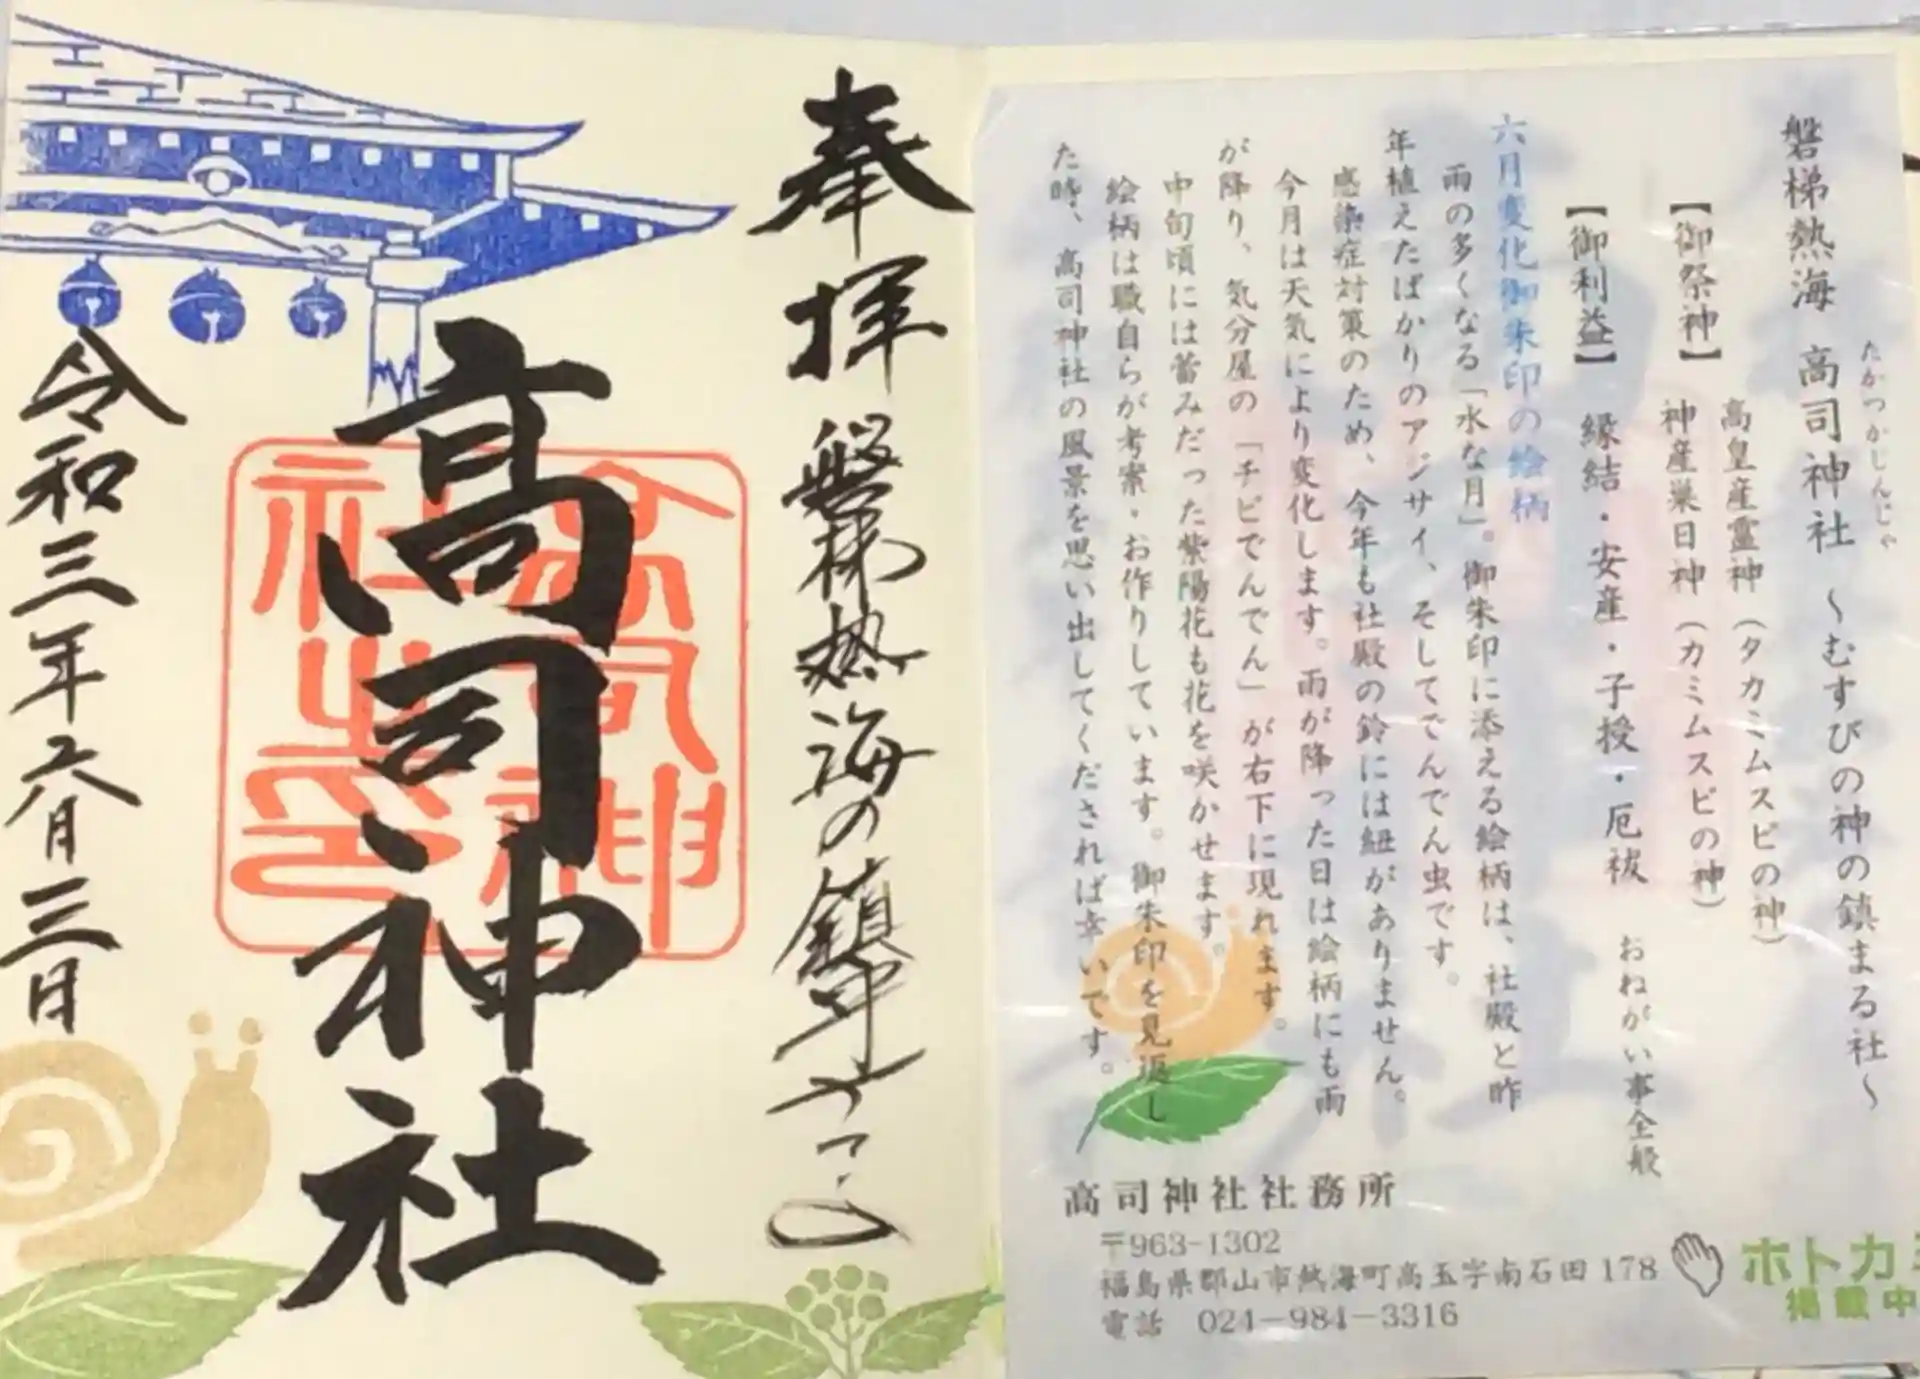 奉拝
磐梯熱海の鎮守やしろ
高司神社
高司神社之印
令和三年六月三日
磐梯熱海 高司神社 ~むすびの神の鎮まる社~
たかつかじんじゃ
【御祭神】 高皇産霊神(タカミムスビの神)
神産巣日神(カミムスビの神)
【御利益】 縁結・安産・子授・厄祓 おねがい事全般
六月変化御朱印の絵柄
雨の多くなる「水な月」。御朱印に添える絵柄は、社殿と昨
年植えたばかりのアジサイ、そしてでんでん虫です。
感染症対策のため、今年も社殿の鈴には紐がありません。
今月は天気により変化します。雨が降った日は絵柄にも雨
が降り、気分屋の「チビでんでん」が右下に現れます。
中旬頃には蕾みだった紫陽花も花を咲かせます。
絵柄は職自らが考案・お作りしています。御朱印を見返し
た時、高司神社の風景を思い出してくだされば幸いです。
高司神社社務所
〒963-1302
福島県郡山市熱海町高玉字南石田178
電話 024-984-3316
ホトカミ
掲載中